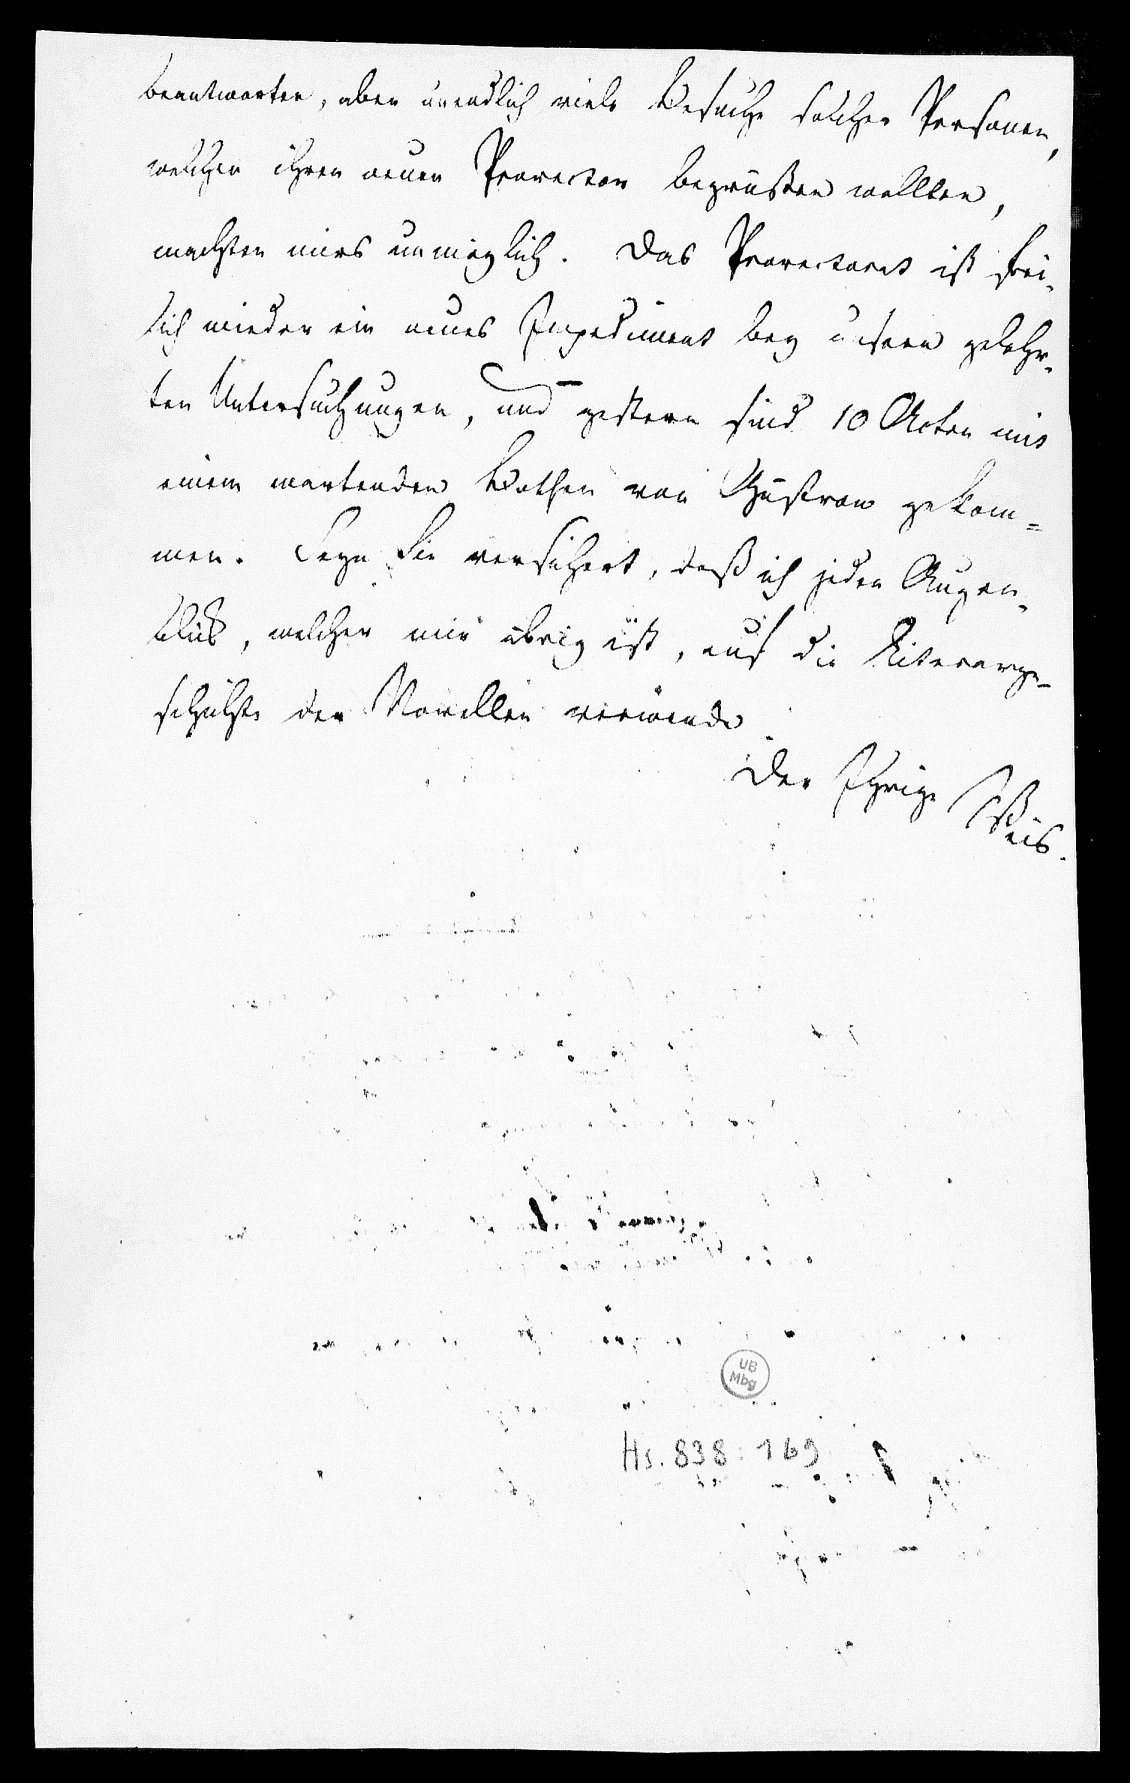 beantworten, aber unendlich viele Besuche solcher Personen,
welcher ihren neuen Prorector begrüßen wollten,
machten mirs unmöglich. Das Prorectorat ist frei-
lich wieder ein neues Impediment bey unsern gelehr-
ten Untersuchungen, und gestern sind 10 Acten mit
einem wartenden Bothen von Güstrow gekom=
men. Seyn Sie versichert, daß ich jeden Augen-
blick, welcher mir übrig ist, auf die Literarge-
schichte der Novellen verwende.
Der Ihrige Weis.
UB
Mbg
Hs. 838:169